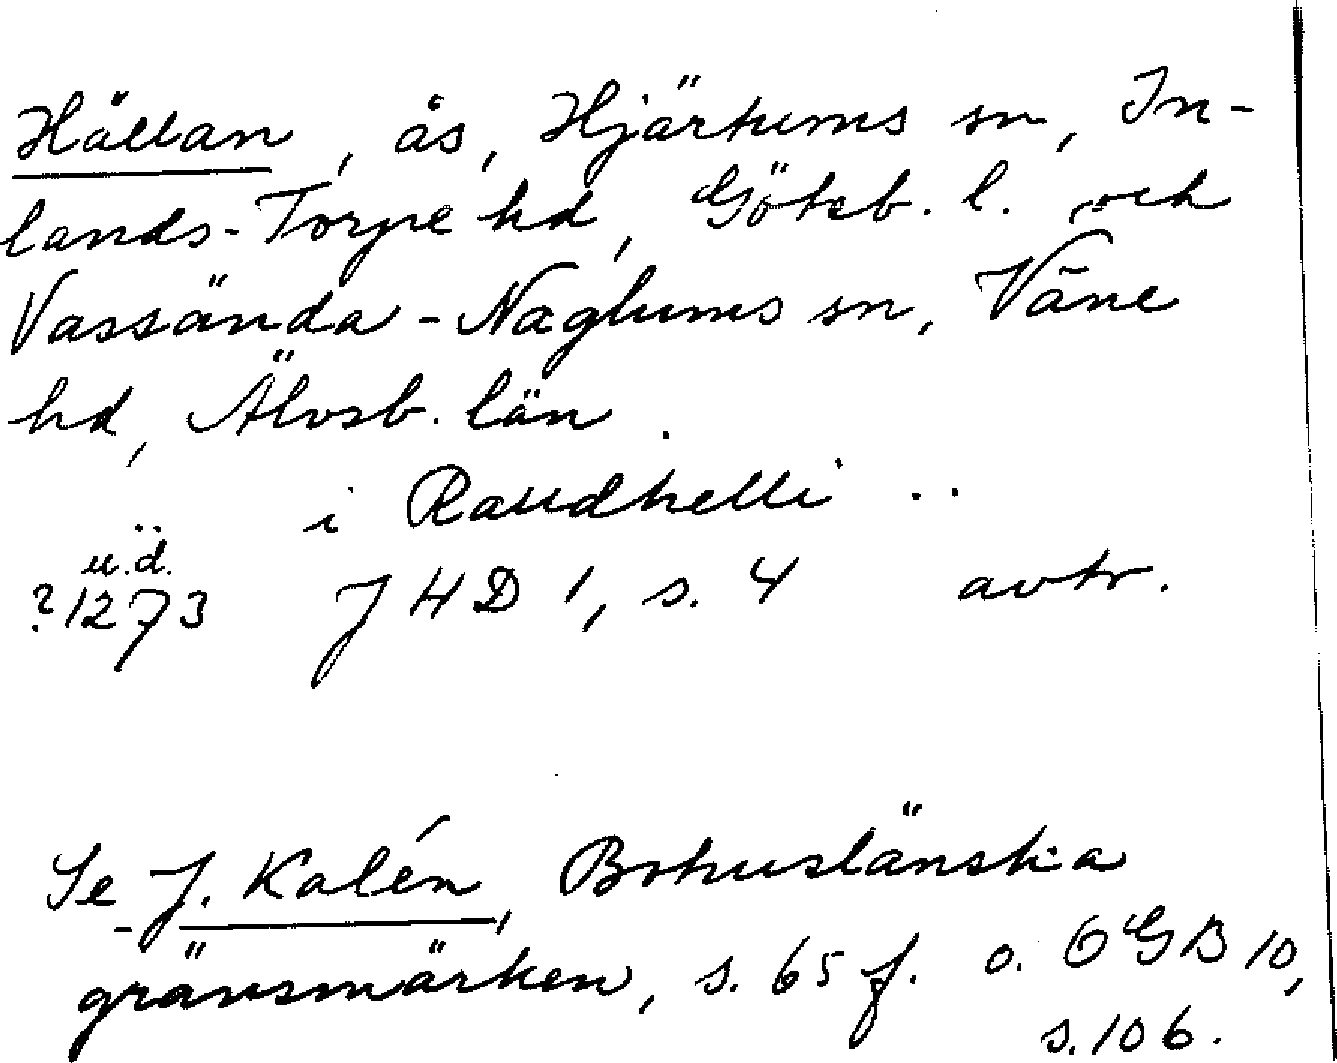 Hållan, ås, Hjärtums sn, In-
lands-Torpe hd, Göteb. l. och
Vassända-Naglums sn, Väne
hd, Älvsb. län.
.. i Raudhelli ..
u.d.
?1273 JHD 1, s. 4 avtr.
Se J. Kalén, Bohuslänska
gränsmärken, s. 65 f. o. OGB 10,
s. 106.